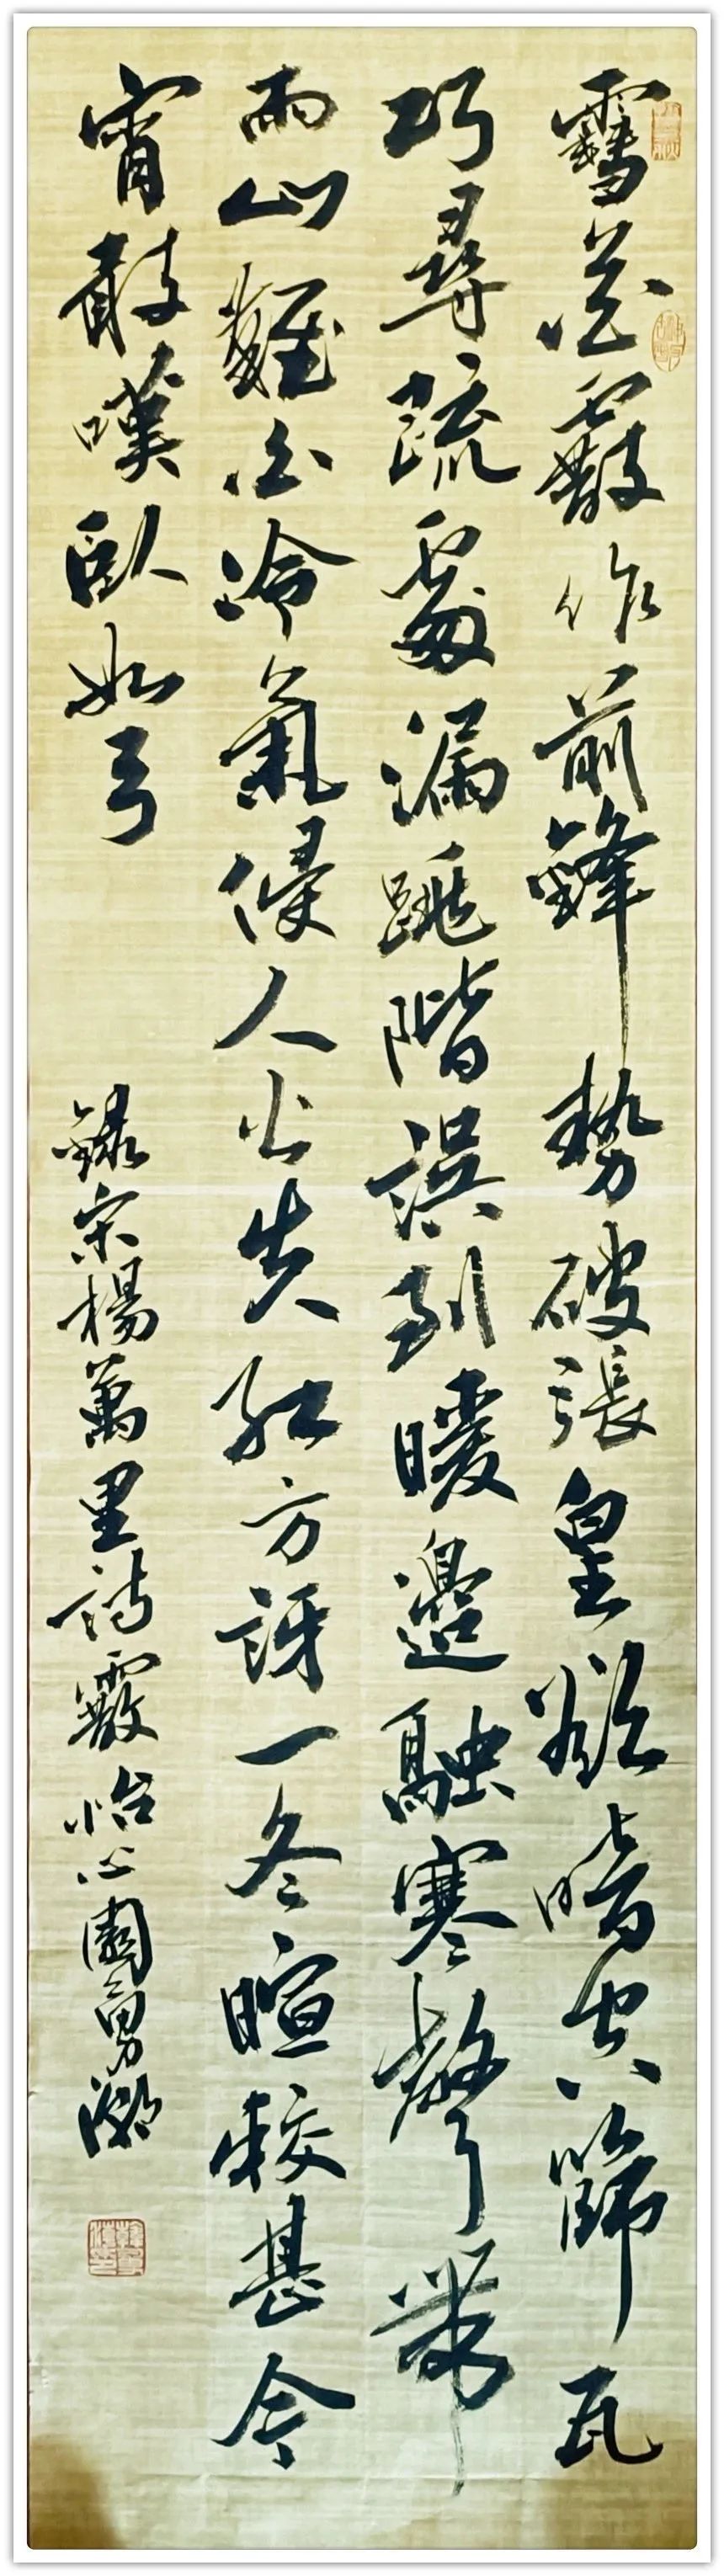 雪花霰作前鋒勢破張皇欲暗空篩瓦
巧尋疏處漏跳階誤到暖邊融寒聲帶
雨山難白冷氣侵人火失紅方訝一冬暄較甚今
宵敢嘆臥如弓
錄宋楊萬里詩霰怡心園勇